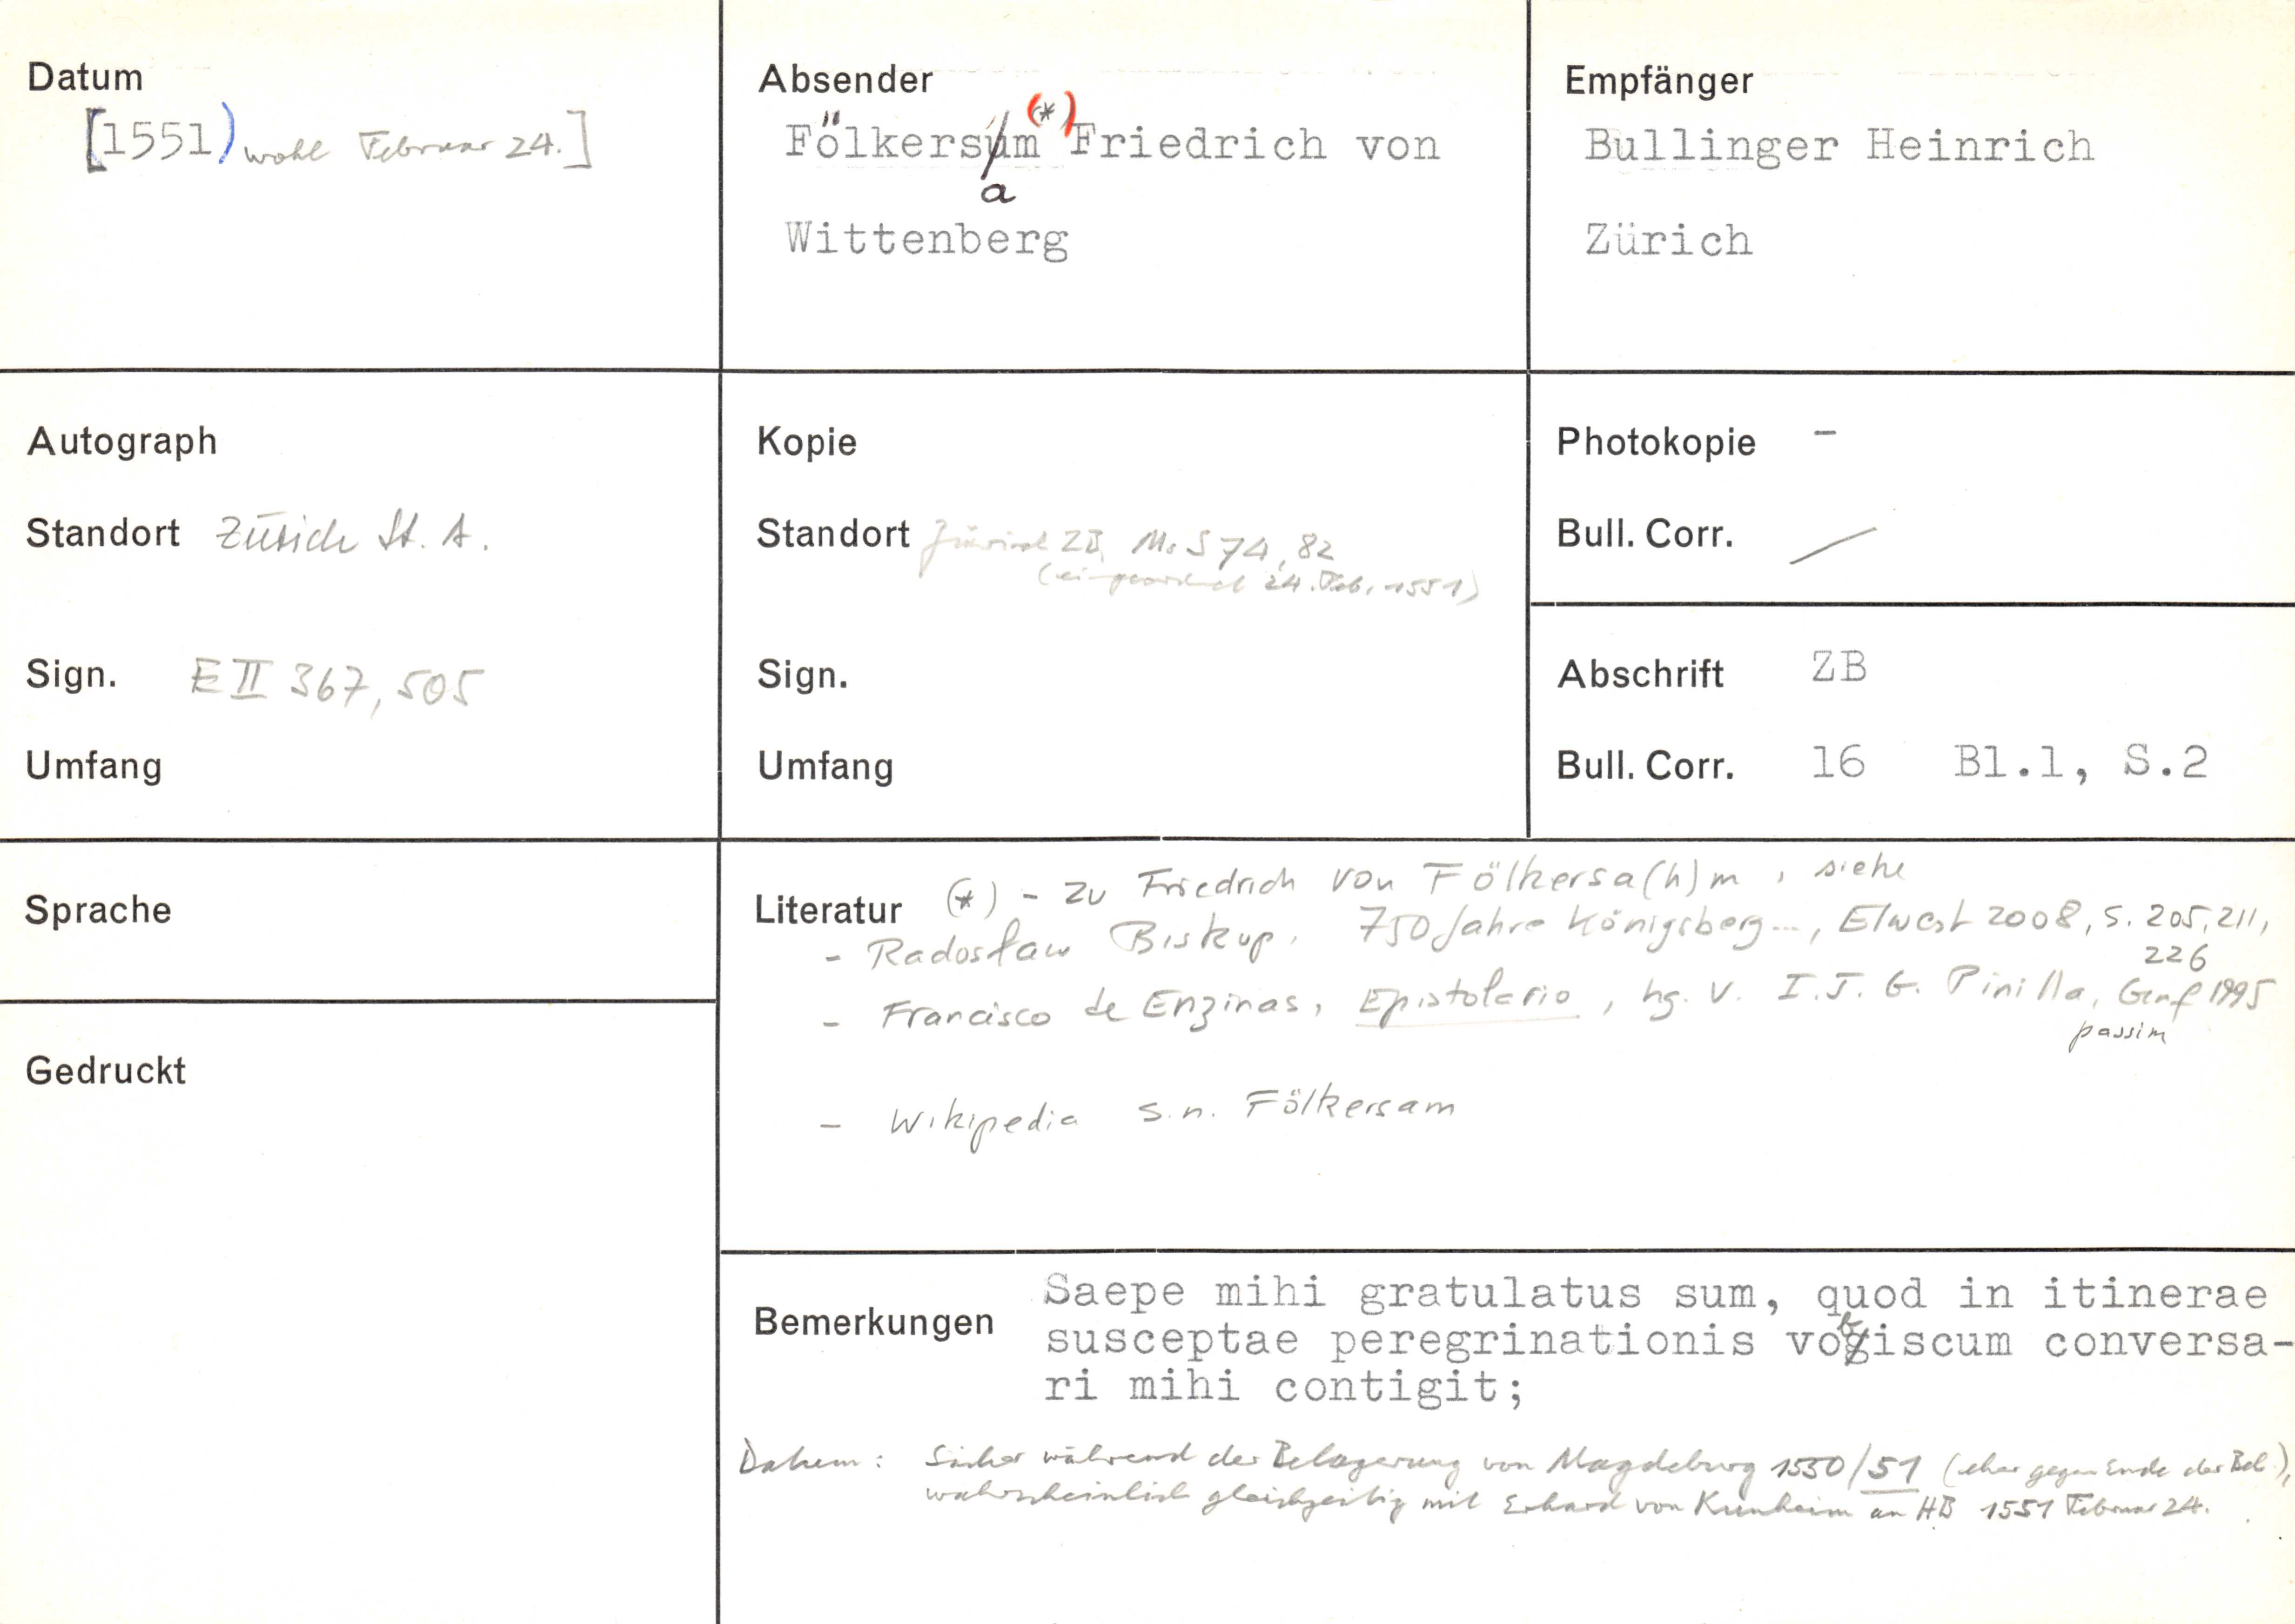 Datum
[1551) wohl Februar 24.]
Absender
Fölkersam (*) Friedrich von
Wittenberg
Empfänger
Bullinger Heinrich
Zürich
Autograph
Standort Zürich St. A.
Sign. E II 367, 505
Umfang
Kopie
Standort Zürich ZB, Ms S 74, 82
(eingeordnet 24. Feb. 1551)
Sign.
Umfang
Photokopie –
Bull. Corr. /
Abschrift ZB
Bull. Corr. 16 Bl.1, S.2
Sprache
Gedruckt
Literatur (*) - zu Friedrich von Fölkersa(h)m, siehe
- Radosław Biskup, 750 Jahre Königsberg..., Elwert 2008, S. 205, 211,
226
- Francisco de Enzinas, Epistolario, hg. v. I. J. G. Pinilla, Genf 1995
passim
- Wikipedia s.n. Fölkersam
Bemerkungen
Saepe mihi gratulatus sum, quod in itinerae
susceptae peregrinationis vobiscum conversa-
ri mihi contigit;
Datum: Sicher während der Belagerung von Magdeburg 1550/51 (eher gegen Ende der Bel.),
wahrscheinlich gleichzeitig mit Erhard von Kunheim an HB 1551 Februar 24.